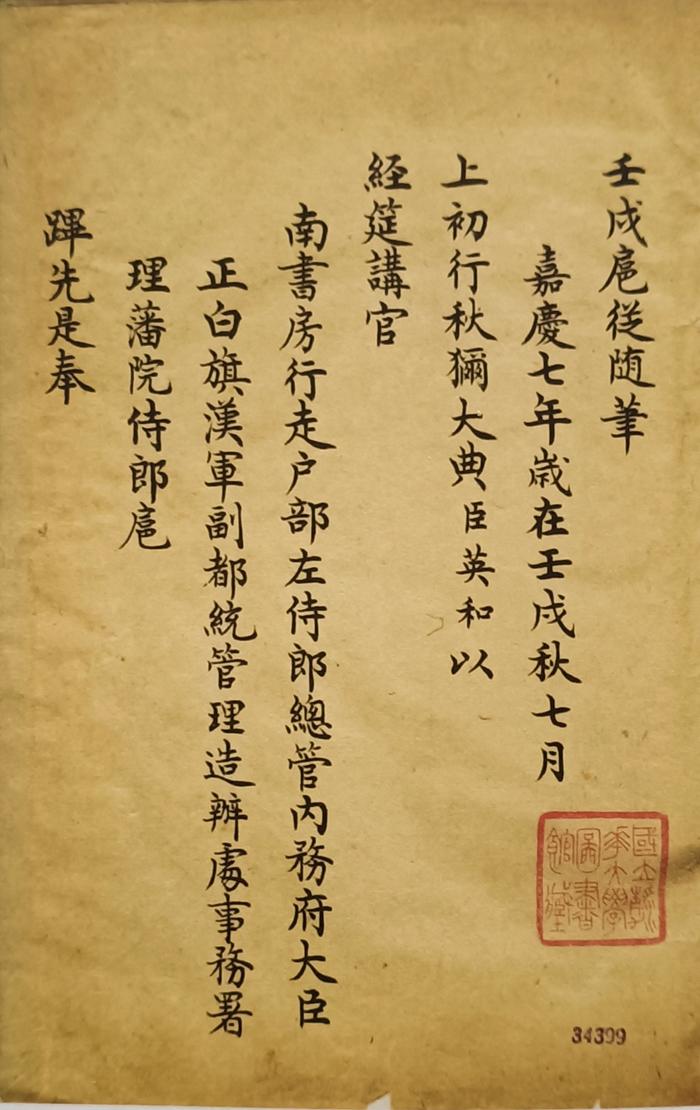 壬戌扈從随筆
嘉慶七年歲在壬戌秋七月
上初行秋獮大典臣英和以
經筵講官
南書房行走户部左侍郎總管内務府大臣
正白旗漢軍副都統管理造辦處事務署
理藩院侍郎扈
蹕先是奉
國立清
華大學
圖書
館藏
34399